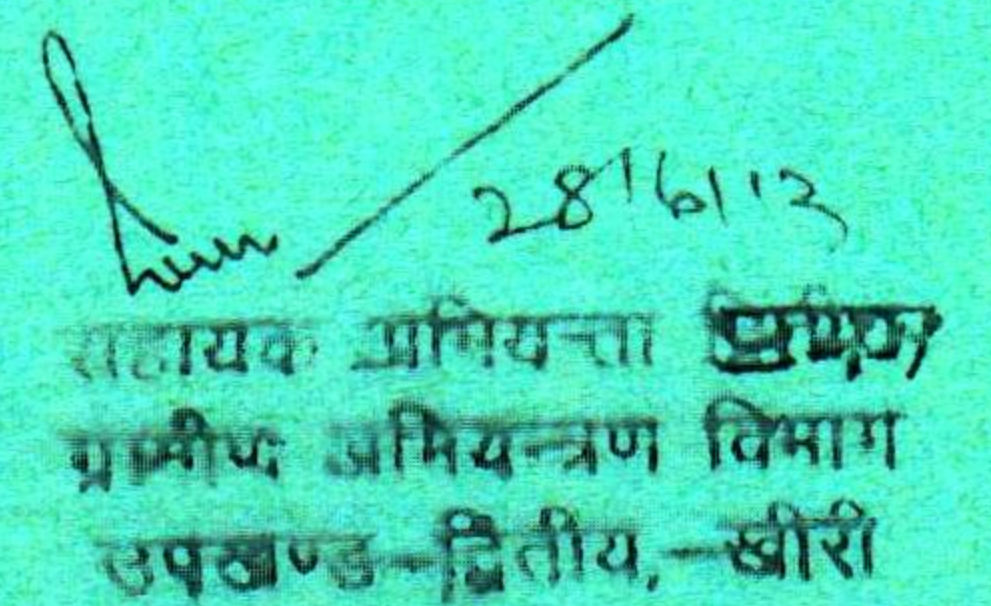 28/6/13
सहायक अभियन्ता
ग्रामीण अभियन्त्रण विभाग
उपखण्ड-द्वितीय,-खीरी